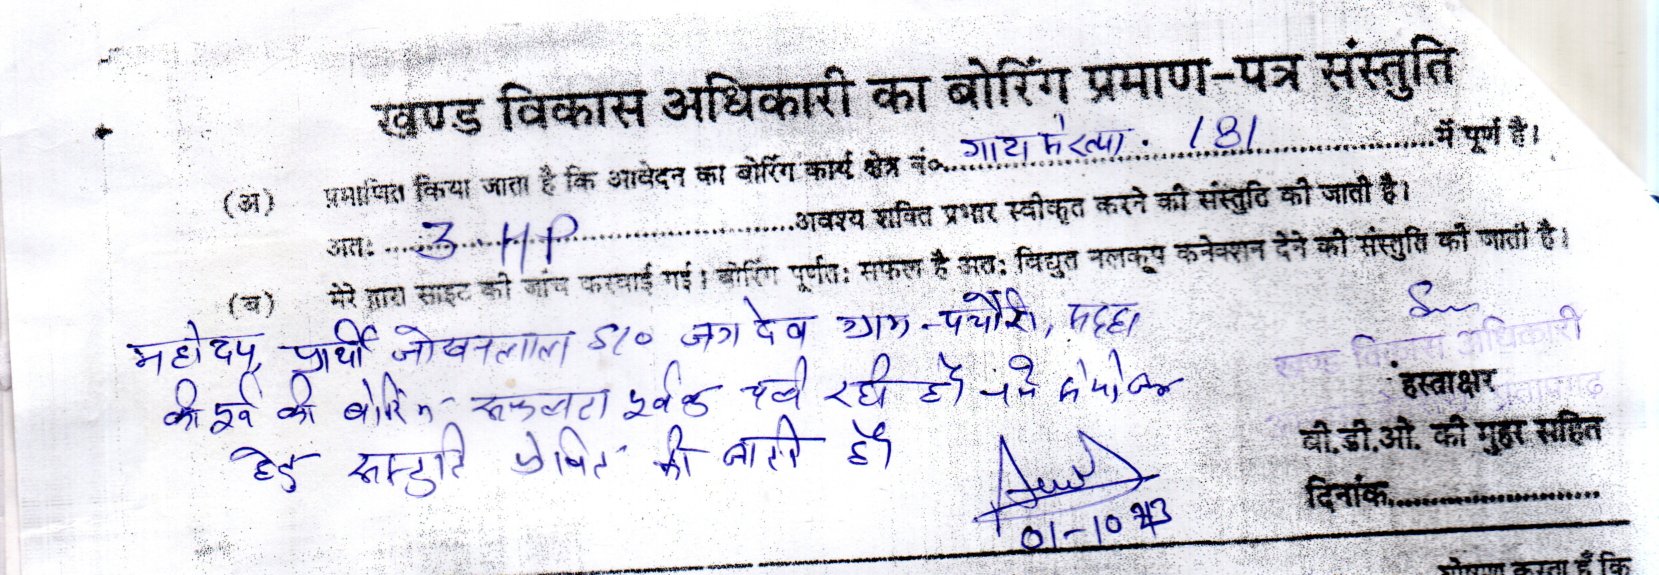 खण्ड विकास अधिकारी का बोरिंग प्रमाण-पत्र संस्तुति
(अ) प्रमाणित किया जाता है कि आवेदन का बोरिंग कार्य क्षेत्र नं०.....गाटा संख्या. 181..........में पूर्ण है।
अतः ....3.HP..............अवश्य शक्ति प्रभार स्वीकृत करने की संस्तुति की जाती है।
(ब) मेरे द्वारा साइट की जांच करवाई गई। बोरिंग पूर्णतः सफल है अतः विद्युत नलकूप कनेक्शन देने की संस्तुति की जाती है।
महोदय, प्रार्थी जोखनलाल S/o जगदेव ग्राम-पचौरी,
की पूर्व की बोरिंग सफलता पूर्वक चल रही है
हेतु संस्तुति प्रेषित की जाती है
खण्ड विकास अधिकारी
हस्ताक्षर
बी.डी.ओ. की मुहर सहित
दिनांक......................
01-10
घोषणा करता हूँ कि